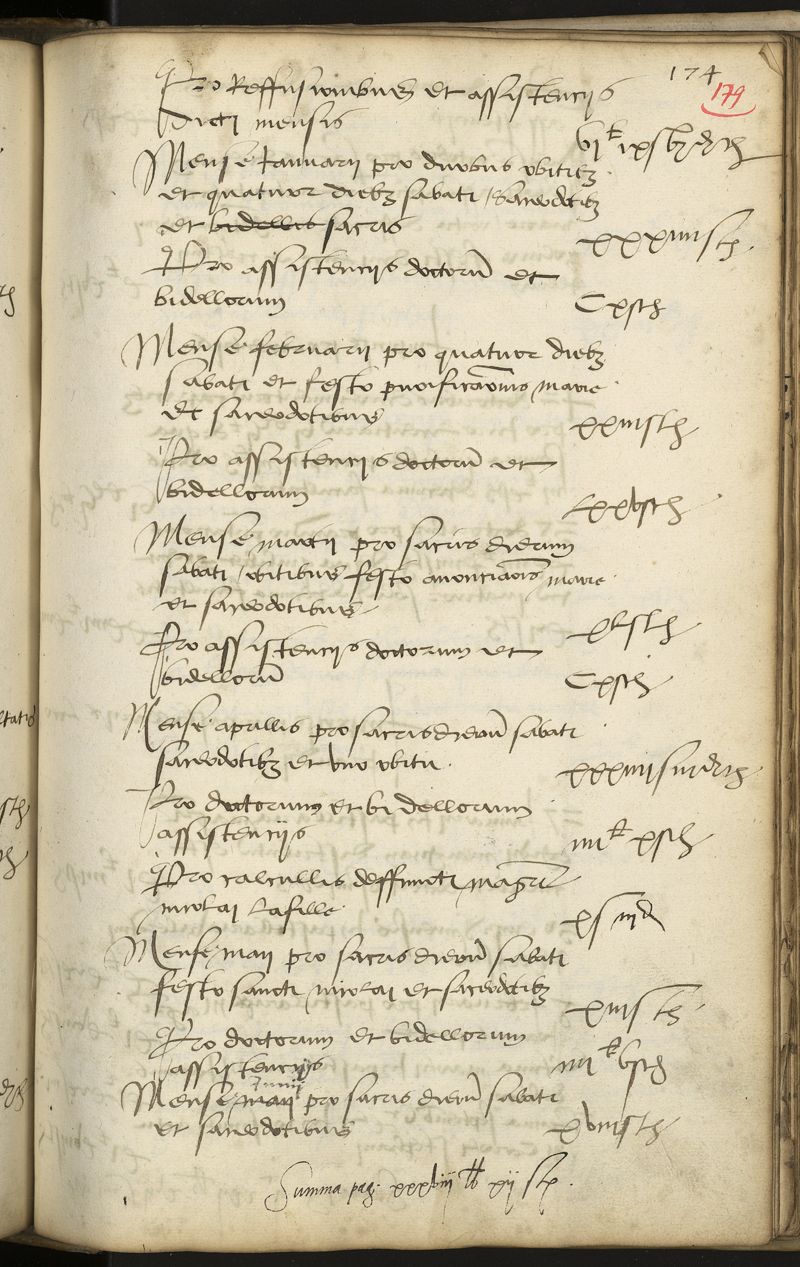 174
179
Pro Reffusionibus et assistenciis
dicti mensis
vi lb ix s vi d th
Mense Januarii pro duobus obitibz
et quatuor diebz sabati sacerdotibz
et bidellis sacris
xxxiiii s th.
Pro assistenciis doctorū et
bidellorum
Cx s th
Mense februarii pro quatuor diebz
sabati et festo purificaōnis marie
et sacerdotibus
xxiii s th
Pro assistenciis doctorū et
bidellorum
Lxxv s th
Mense martii pro sacris dierum
sabati obitibus festo anonciaōis marie
et sacerdotibus
xl s th
Pro assistenciis doctorum et
bidellorū
Cx s th
Mense aprillis pro sacris dierū sabati
sacerdotibz et uno obitu
xxxiiii s iii d th
Pro doctorum et bidellorum
assistenciis
iiii lb x s th
Pro calcullis deffuncti magri
nicolai Lasille
x s iii d
Mense maii pro sacris dierū sabati
festo sancti nicolai et sacerdotibz
xiii s th
Pro doctorum et bidellorum
assistenciis
iiii lb v s th
Junii
Mense maii pro sacris dierū sabati
et sacerdotibus
xviii s th
Summa pag. xxxviii lb xii s